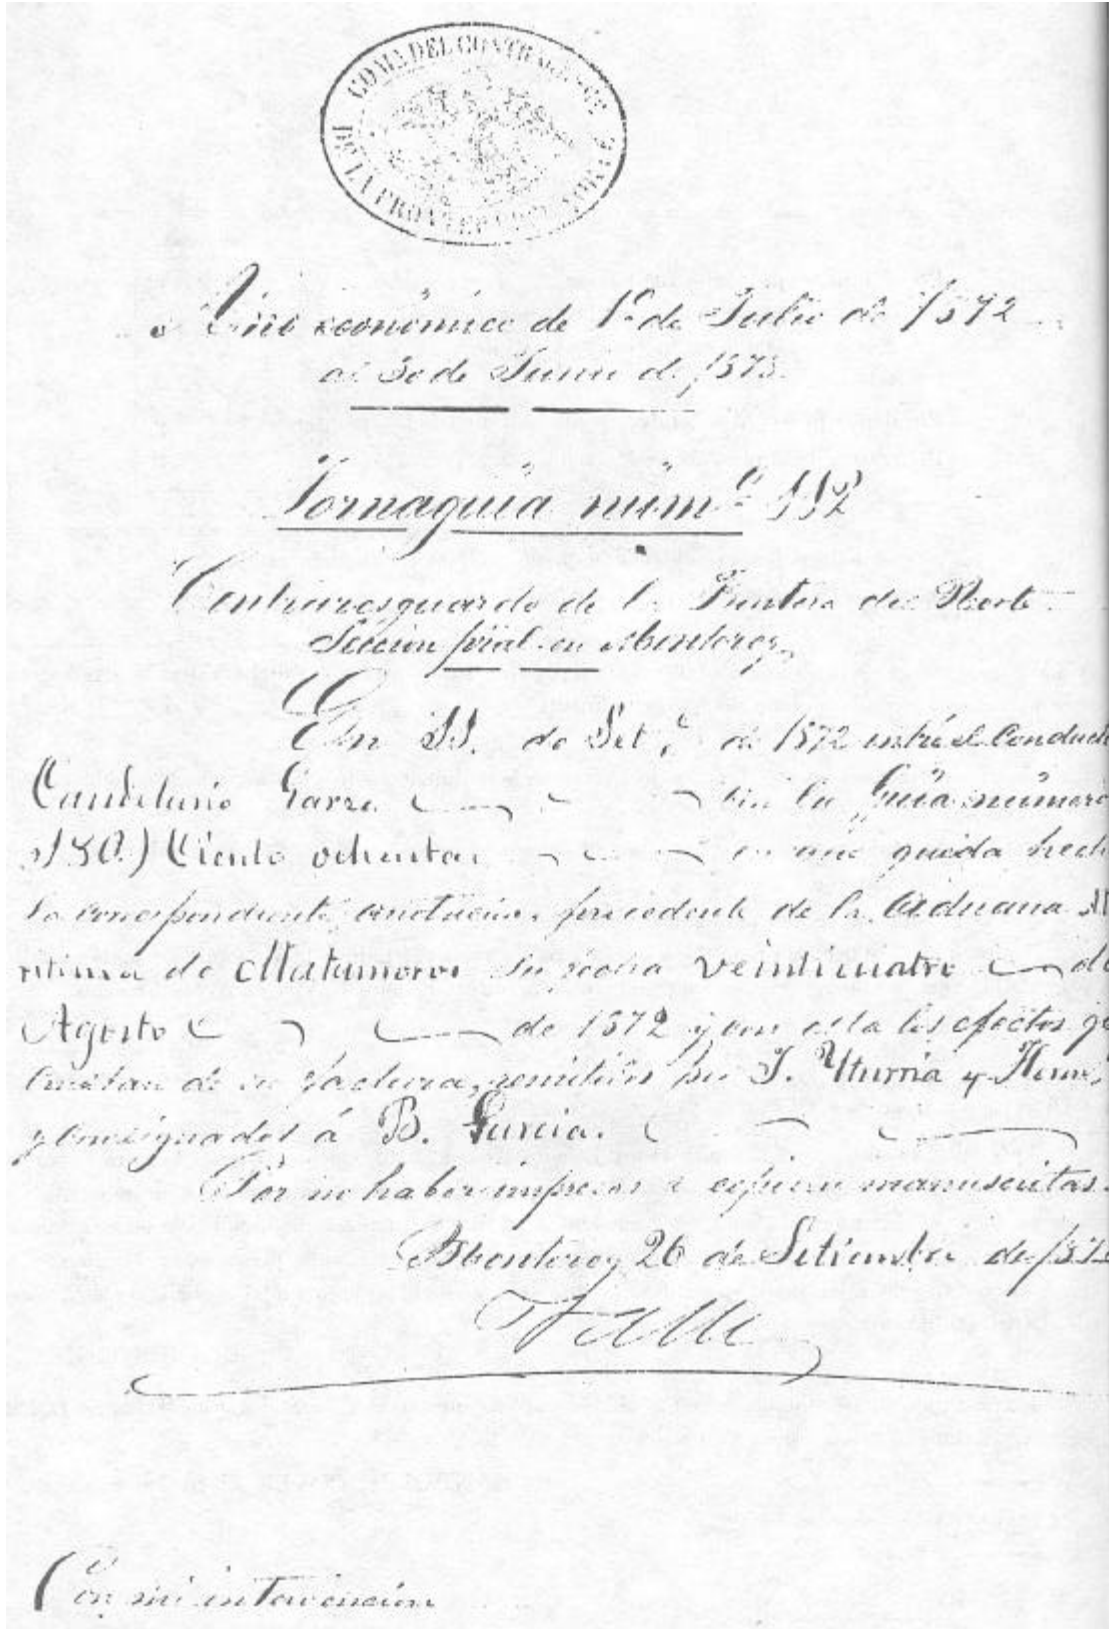 COMA. DEL CONTRA
DE LA FRONTERA DEL NORTE
Año económico de 1º de Julio de 1872
al 30 de Junio de 1873.
Tornaguía núm.º 112
Contraresguardo de la Frontera del Norte
Sección pral. en Monterey
En 11. de Set.e de 1872 entró el Conduct
Candelario Garza con la Guía número
(180.) Ciento ochenta en que queda hech
la correspondiente anotación, procedente de la Aduana M
ritima de Matamoros su fecha veinticuatro de
Agosto de 1872 y con esta los efectos q
constan de su factura, remitidos por Y. Yturria y Herm.
y consignados á B. Garcia.
Por no haber impresos se espiden manuscritas.
Monterey 26 de Setiembre de 187
Valle
Con mi intervencion